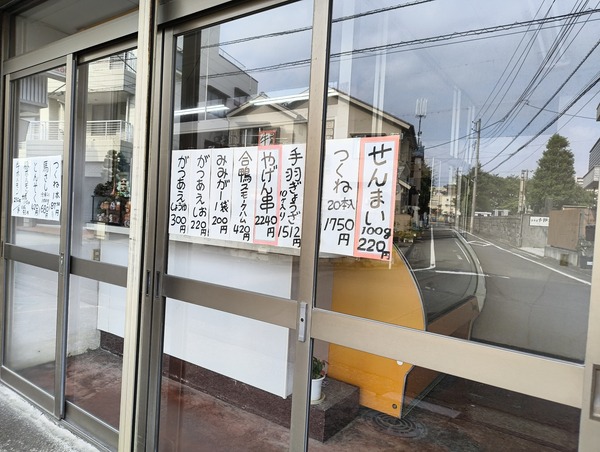 せんまい 100g 220円
つくね 20本入 1750円
手羽ぎょうざ 10本入り 1512円
やげん串 2240円
合鴨スモークハム 420円
みみガー 1袋 200円
がつあえしお 220円
がつあえしょうゆ 300円
つくね 1本